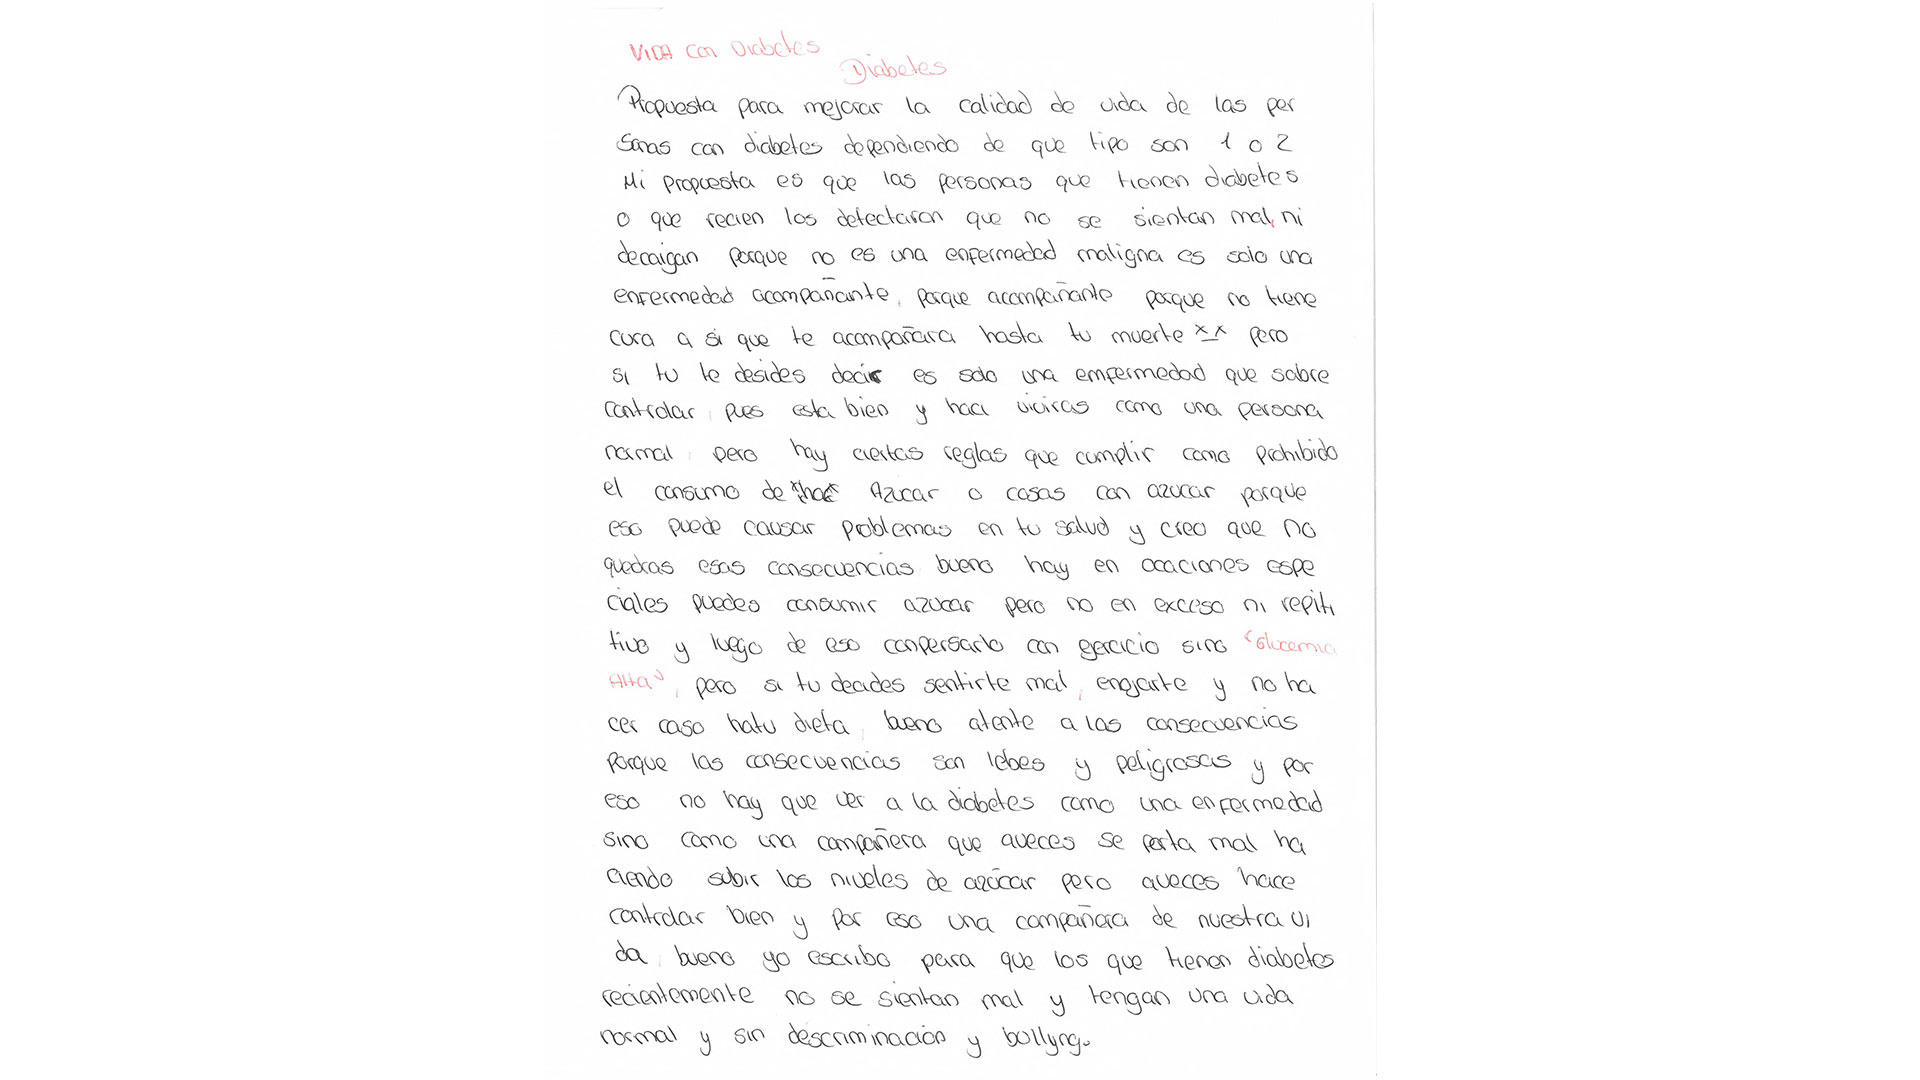 VIDA con Diabetes
Diabetes
Propuesta para mejorar la calidad de vida de las per
sonas con diabetes dependiendo de que tipo son 1 o 2
Mi propuesta es que las personas que tienen diabetes
o que recien los detectaron que no se sientan mal, ni
decaigan porque no es una enfermedad maligna es solo una
enfermedad acompañante, porque acompañante porque no tiene
cura a si que te acompañara hasta tu muerte x_x pero
si tu te desides decir es solo una emfermedad que sabre
controlar, pues esta bien y haci viviras como una persona
normal, pero hay ciertas reglas que cumplir como prohibido
el consumo de Azucar o cosas con azucar porque
eso puede causar problemas en tu salud y creo que no
quedras esas consecuencias bueno hay en ocaciones espe
ciales puedes consumir azucar pero no en exceso ni repiti
tivo y luego de eso conpersarlo con gercicio sino "Glucemia
Alta", pero si tu decides sentirte mal, enojarte y no ha
cer caso hatu dieta, bueno atente a las consecuencias
porque las consecuencias son lebes y peligrosas y por
eso no hay que ver a la diabetes como una enfermedad
sino como una compañera que aveces se porta mal ha
ciendo subir los niveles de azúcar pero aveces hace
controlar bien y por eso una compañera de nuestra vi
da, bueno yo escribo para que los que tienen diabetes
recientemente no se sientan mal y tengan una vida
normal y sin descriminación y bullyng.